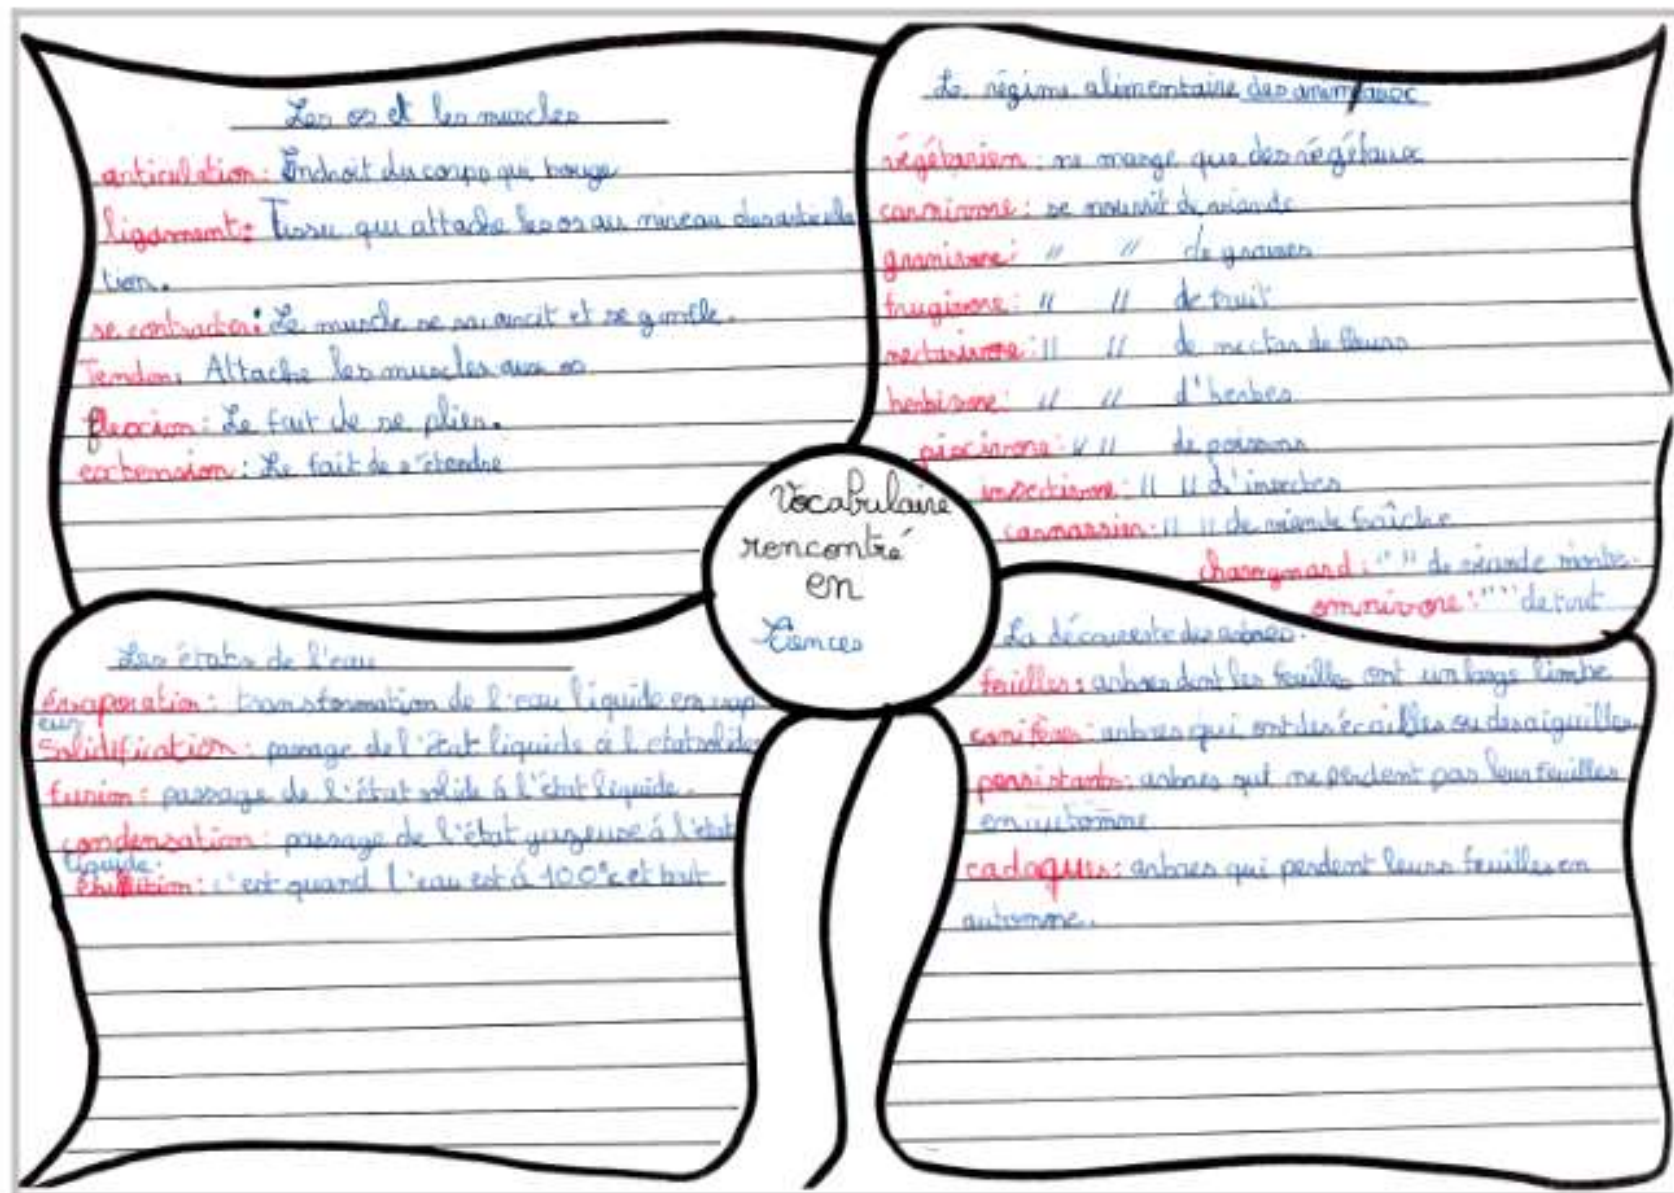 Les os et les muscles
articulation : Endroit du corps qui bouge
ligament : Tissu qui attache les os au niveau des articula
tion.
se contracter : Le muscle se raccourcit et se gonfle.
Tendon : Attache les muscles aux os
flexion : Le fait de se plier.
extension : Le fait de s'étendre
Le régime alimentaire des animaux
végétarien : ne mange que des végétaux
carnivore : se nourrit de viande
granivore : " " de graines
frugivore : " " de fruit
nectarivore : " " de nectar de fleurs
herbivore : " " d'herbes
piscivore : " " de poissons
insectivore : " " d'insectes
carnassier : " " de viande fraîche
charognard : " " de viande morte.
omnivore : " " de tout
Vocabulaire
rencontré
en
Les états de l'eau
évaporation : transformation de l'eau liquide en vap
eur
Solidification : passage de l'état liquide à l'état solide
fusion : passage de l'état solide à l'état liquide.
condensation : passage de l'état gazeuse à l'état
liquide.
ébullition : c'est quand l'eau est à 100°c et bout
La découverte des arbres.
feuilles : arbres dont les feuilles ont un large limbe
conifères : arbres qui ont des écailles ou des aiguilles
persistants : arbres qui ne perdent pas leurs feuilles
en automne
cadoques : arbres qui perdent leurs feuilles en
automne.